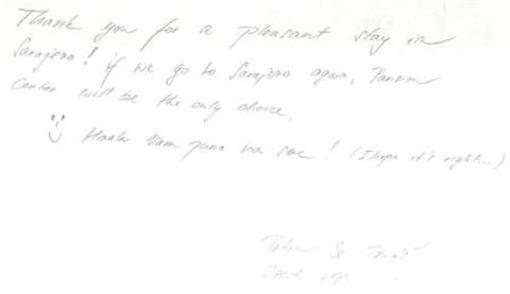 Thank you for a pleasant stay in
Sarajevo! if we go to Sarajevo again,
Center will be the only choice.
Hvala Vam puno na sve! (I hope it's right...)
&